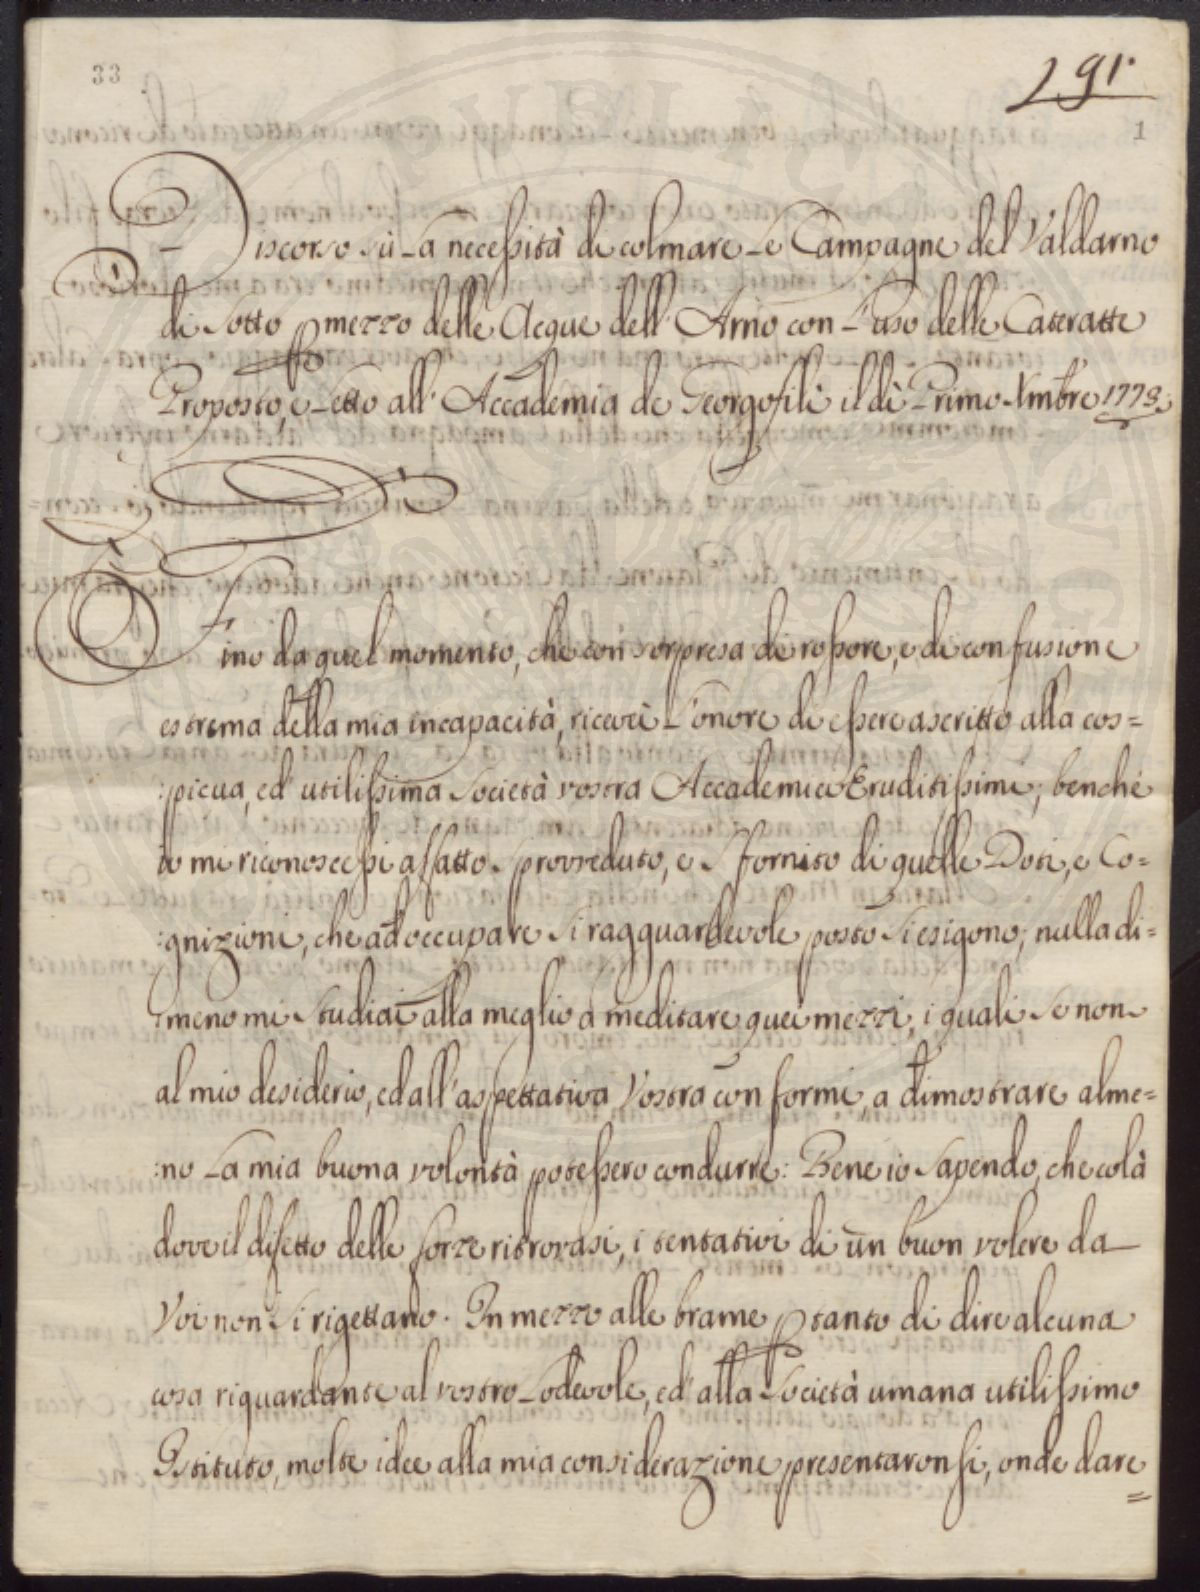 33
291.
1
Discorso sù la necessità di colmare le Campagne del Valdarno
di Sotto p mezzo delle Acque dell' Arno con l'uso delle Cateratte
Proposto, e letto all' Accademia de Georgofili il dì Primo Xmbre 1773.
Fino da quel momento, che con sorpresa di rossore, e di confusione
estrema della mia incapacità, ricevei l'onore di essere ascritto alla cos=
:picua, ed utilissima Società vostra Accademici Eruditissimi; benchè
io mi riconoscessi affatto sprovveduto, e sfornito di quelle Doti, e Co=
:gnizioni, che ad occupare sì ragguardevole posto si esigono; nulladi=
:meno mi studiai alla meglio a meditare quei mezzi, i quali se non
al mio desiderio, ed all'aspettativa Vostra conformi, a dimostrare alme=
:no la mia buona volontà potessero condurre: Bene io sapendo, che colà
dove il difetto delle forze ritrovasi, i tentativi di un buon volere da
Voi non si rigettano. In mezzo alle brame ptanto di dire alcuna
cosa riguardante al vostro lodevole, ed' alla Società umana utilissimo
Istituto, molte idee alla mia considerazione presentaronsi, onde dare
=